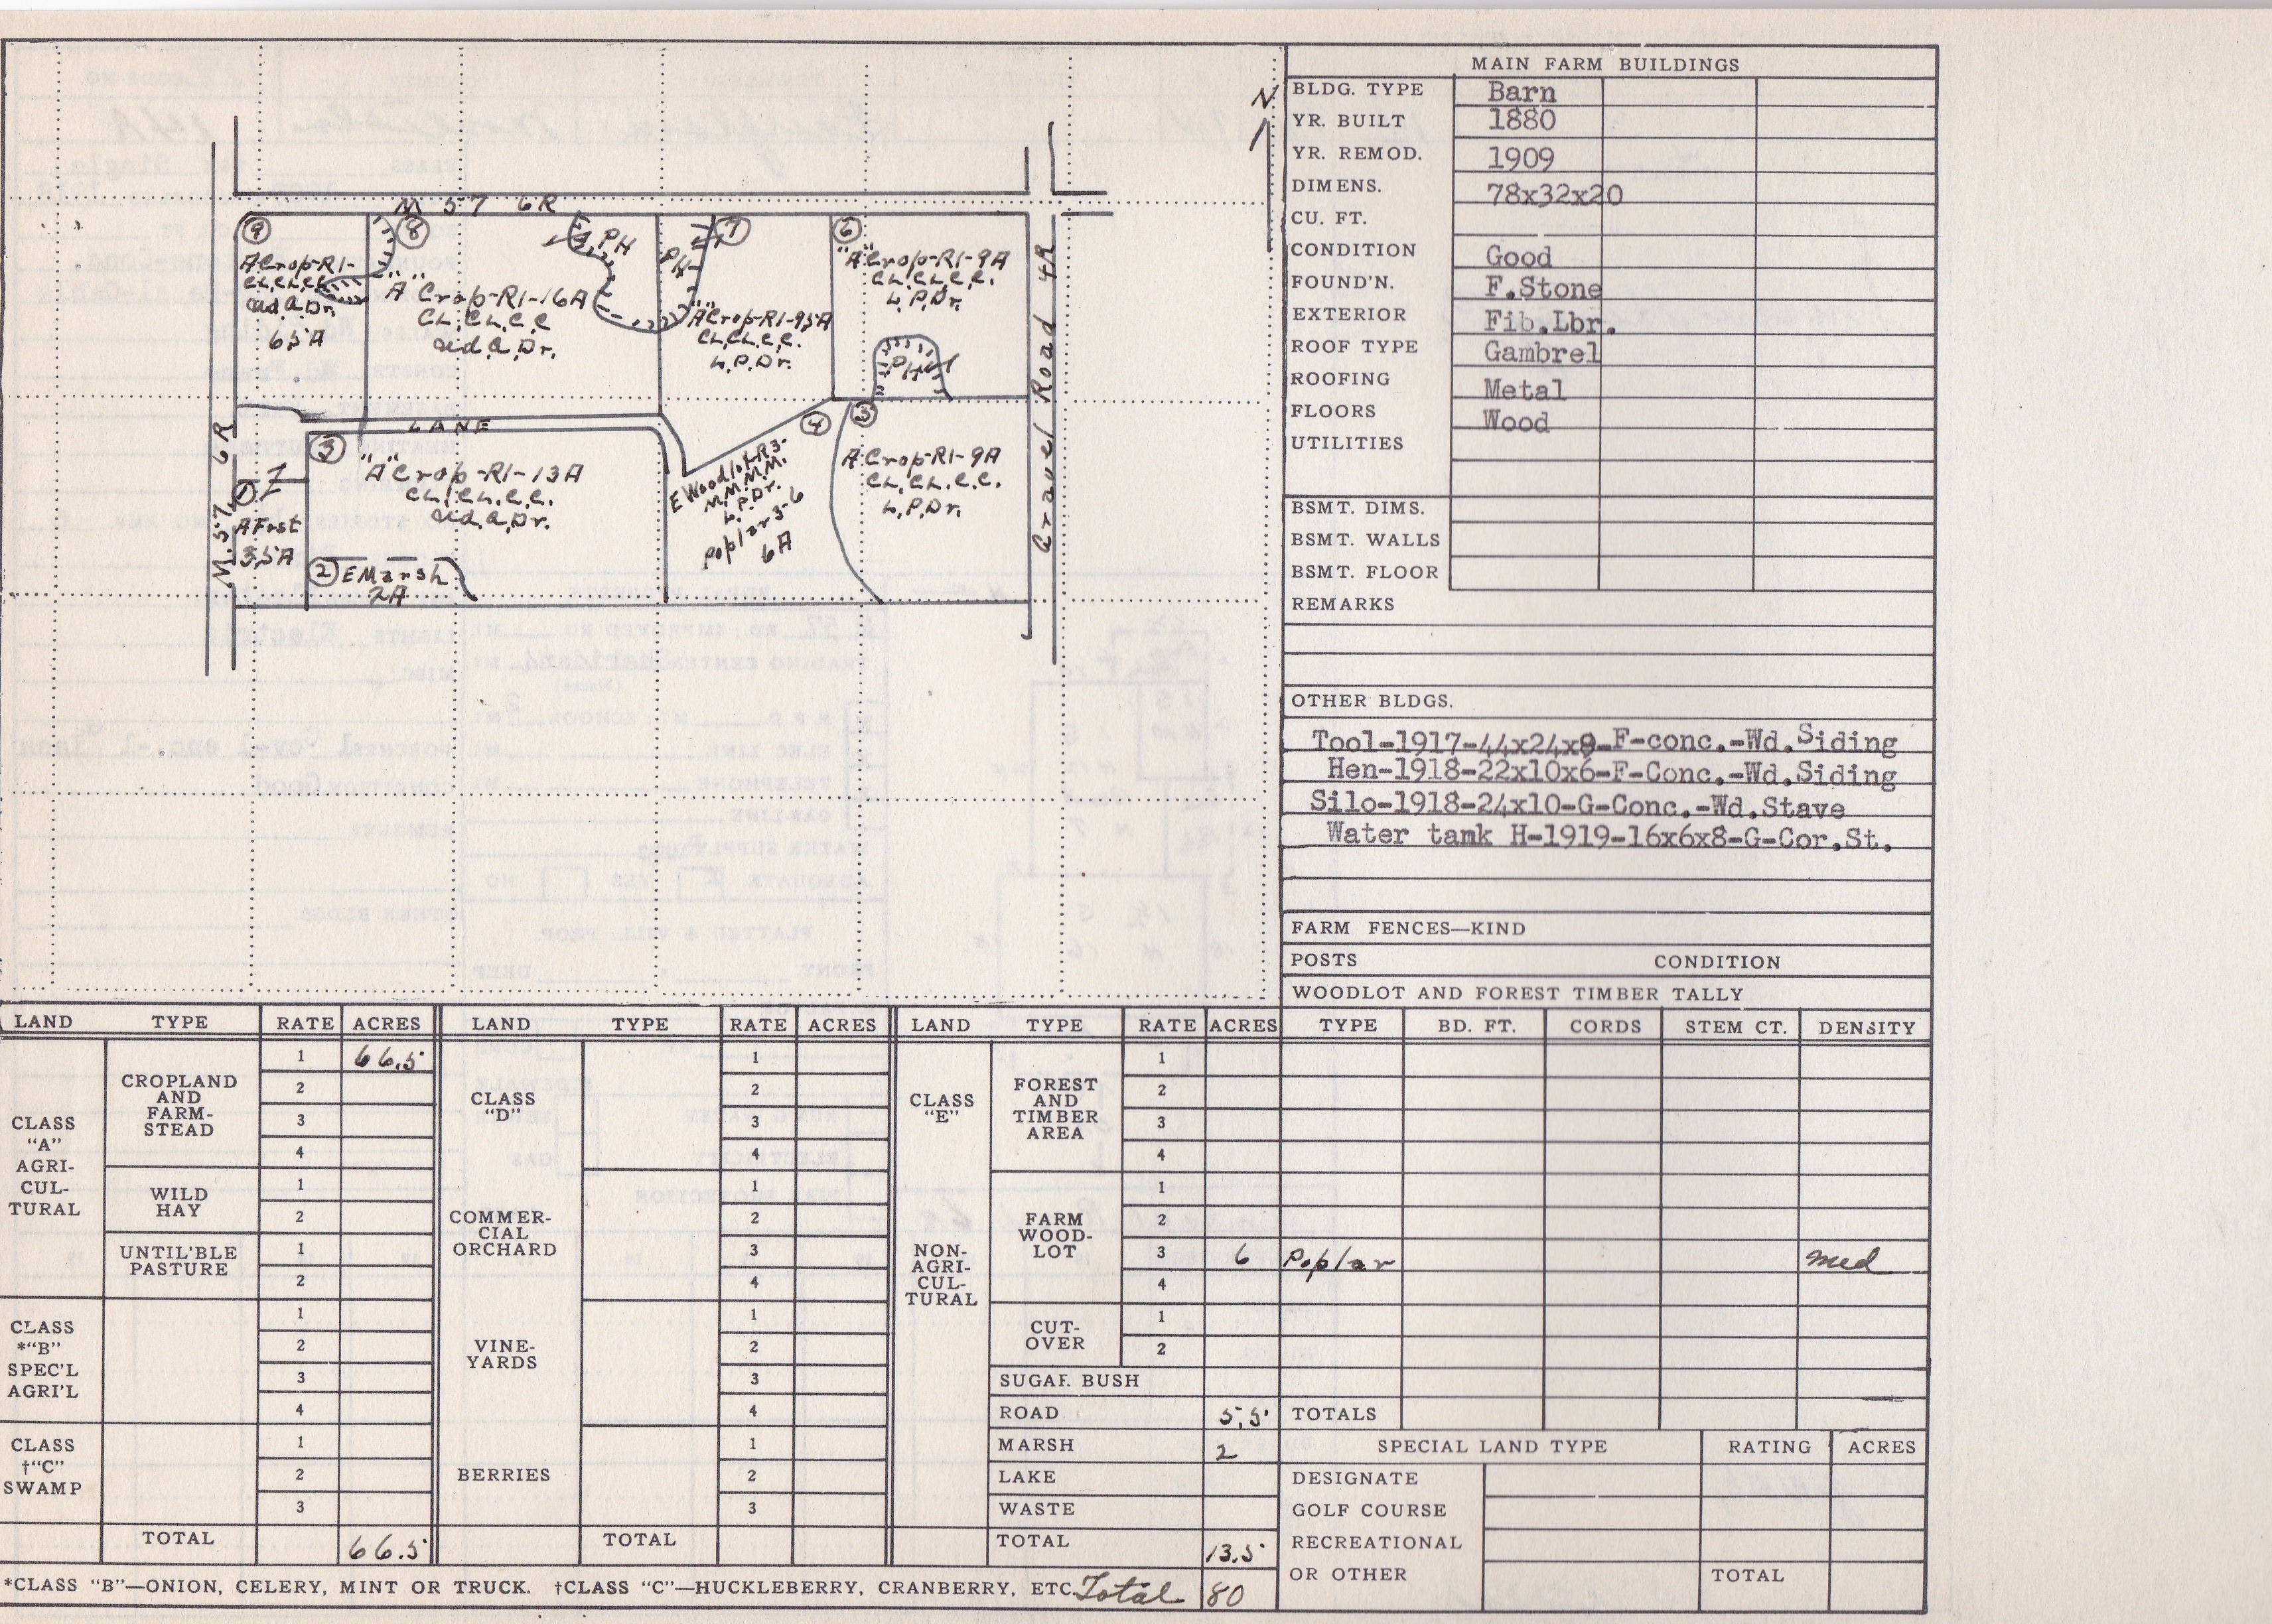 N.
M 57 6R
⑨
A Crop-R1-
CL,CL,C,C
6.5A
⑧
"A" Crop-R1-16A
CL,CL,C,C
PH
PH
⑦
"A" Crop-R1-9.5A
CL,CL,C.C.
L.P.Dr.
⑥
"A" Crop-R1-9A
CL,CL,C.C.
L.P.Dr.
PH
Gravel Road 4R
LANE
M.57 6R
①
A Frst
3.5A
②
E Marsh
2A
③
"A" Crop-R1-13A
CL,CL,C.C.
④
E Woodlot-R3-
M.M.M.M.
L.P.Dr.
Poplar 3-6
6A
A Crop-R1-9A
CL,CL,C.C.
L,P,Dr.
MAIN FARM BUILDINGS
BLDG. TYPE Barn
YR. BUILT 1880
YR. REMOD. 1909
DIMENS. 78x32x20
CU. FT.
CONDITION Good
FOUND'N. F.Stone
EXTERIOR Fib.Lbr.
ROOF TYPE Gambrel
ROOFING Metal
FLOORS Wood
UTILITIES
BSMT. DIMS.
BSMT. WALLS
BSMT. FLOOR
REMARKS
OTHER BLDGS.
Tool-1917-44x24x9-F-conc.-Wd.Siding
Hen-1918-22x10x6-F-Conc.-Wd.Siding
Silo-1918-24x10-G-Conc.-Wd.Stave
Water tank H-1919-16x6x8-G-Cor.St.
FARM FENCES—KIND
POSTS CONDITION
WOODLOT AND FOREST TIMBER TALLY
LAND TYPE RATE ACRES LAND TYPE RATE ACRES LAND TYPE RATE ACRES TYPE BD. FT. CORDS STEM CT. DENSITY
CLASS
"A"
AGRI-
CUL-
TURAL
CROPLAND
AND
FARM-
STEAD
1 66.5
2
3
4
WILD
HAY
1
2
UNTIL'BLE
PASTURE
1
2
CLASS
*"B"
SPEC'L
AGRI'L
1
2
3
4
CLASS
†"C"
SWAMP
1
2
3
TOTAL 66.5
CLASS
"D"
1
2
3
4
COMMER-
CIAL
ORCHARD
1
2
3
4
VINE-
YARDS
1
2
3
4
BERRIES
1
2
3
TOTAL
CLASS
"E"
NON-
AGRI-
CUL-
TURAL
FOREST
AND
TIMBER
AREA
1
2
3
4
FARM
WOOD-
LOT
1
2
3 6 Poplar med
4
CUT-
OVER
1
2
SUGAR BUSH
ROAD 5.5 TOTALS
MARSH 2
LAKE
WASTE
TOTAL 13.5
SPECIAL LAND TYPE RATING ACRES
DESIGNATE
GOLF COURSE
RECREATIONAL
OR OTHER TOTAL
*CLASS "B"—ONION, CELERY, MINT OR TRUCK. †CLASS "C"—HUCKLEBERRY, CRANBERRY, ETC. Total 80